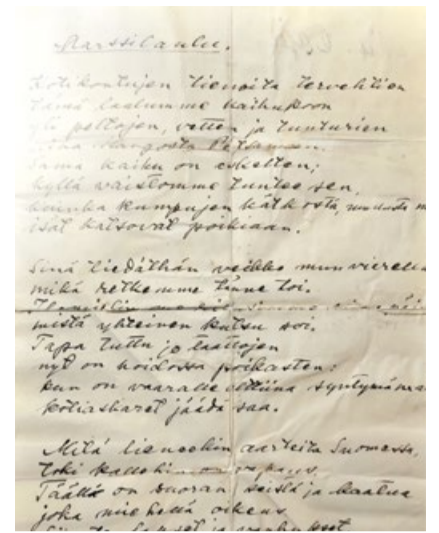 Marssilaulu.
Kotikontujen tienoita tervehtien
tämä laulumme kaikukoon
yli peltojen, vetten ja tunturien
Hangosta
Sama kaiku on askelten;
kyllä vaistomme tuntee sen,
kuinka kumpujen kätköstä,
isät katsovat poikiaan.
Sinä tiedäthän veikko mun vierellä
mikä retkemme tänne toi.
mistä yhteinen kutsu soi.
Tapa tuttu jo taattojen
nyt on hoidossa poikasten:
kun on vaaralle alttiina
kotiaskaret jäädä saa.
Mitä lieneekin aarteita Suomessa,
toki kallehin on vapaus.
Täällä on vuoron seistä ja kaatua
joka miehellä oikeus.
lapset ja vanhukset